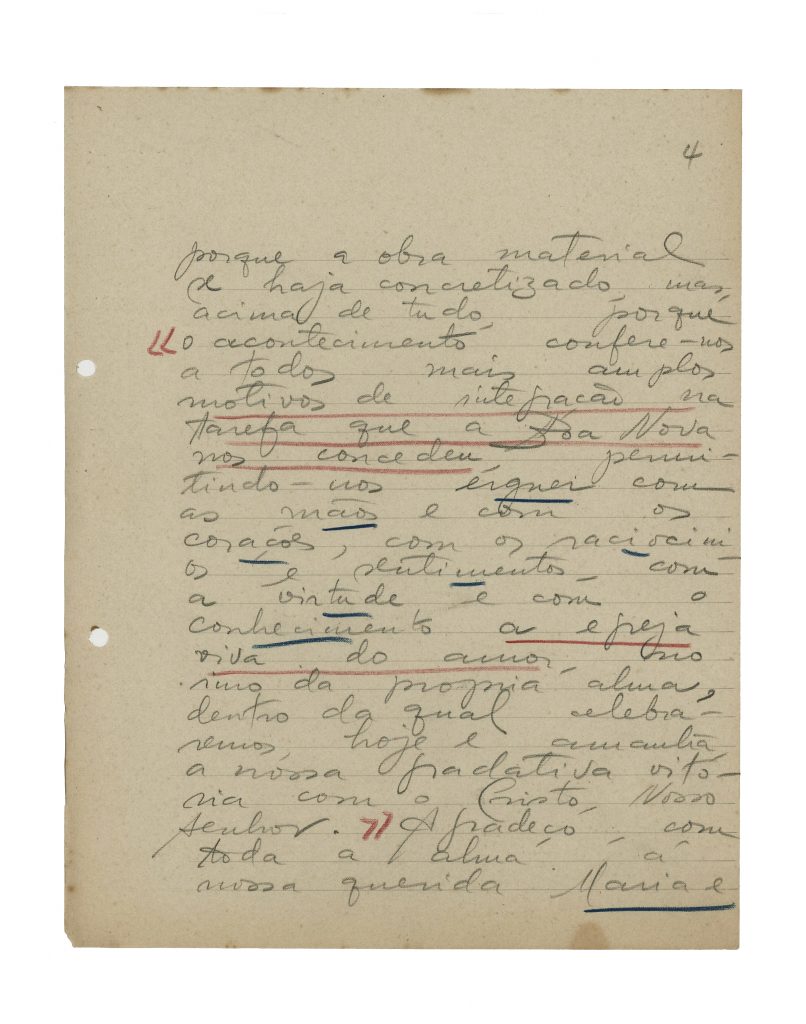 4
porque a obra material
se haja concretizado, mas,
acima de tudo, porque
«o acontecimento confere-nos
a todos mais amplos
motivos de integração na
tarefa que a Boa Nova
nos concedeu, permi-
tindo-nos erguer com
as mãos e com os
corações, com os raciocini-
os e sentimentos, com
a virtude e com o
conhecimento a egreja
viva do amor, no
imo da propria alma,
dentro da qual celebra-
remos, hoje e amanhã,
a nossa gradativa vitó-
ria com o Cristo, Nosso
Senhor.» Agradeço, com
toda a alma, á
nossa querida Maria e